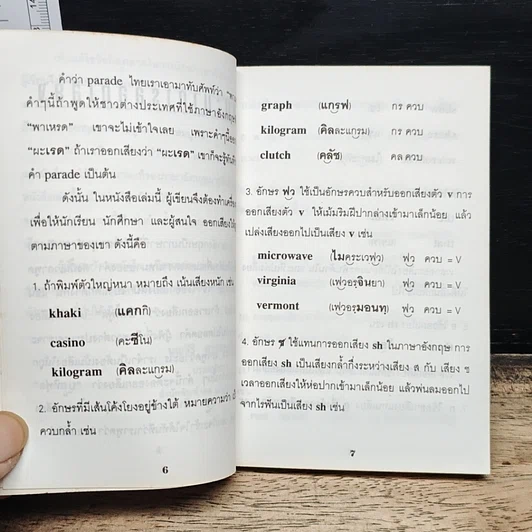 คำว่า parade ไทยเราเอามาทับศัพท์ว่า
คำๆนี้ถ้าพูดให้ชาวต่างประเทศที่ใช้ภาษาอังกฤษ
"พาเหรด" เขาจะไม่เข้าใจเลย เพราะคำๆนี้
"ผะเรด" ถ้าเราออกเสียงว่า "ผะเรด" เขาก็จะรู้ทันที
คำ parade เป็นต้น
ดังนั้น ในหนังสือเล่มนี้ ผู้เขียนจึงต้อง
เพื่อให้นักเรียน นักศึกษา และผู้สนใจ ออกเสียงได้
ตามภาษาของเขา ดังนี้คือ
1. ถ้าพิมพ์ตัวใหญ่หนา หมายถึง เน้นเสียงหนัก เช่น
khaki (แคกกิ)
casino (คะซีโน)
kilogram (คิลละแกรม)
2. อักษรที่มีเส้นโค้งโยงอยู่ข้างใต้ หมายความว่า
ควบกล้ำ เช่น
6
graph (แกรฟ) กร ควบ
kilogram (คิลละแกรม) กร ควบ
clutch (คลัช) คล ควบ
3. อักษร ฟว ใช้เป็นอักษรควบสำหรับออกเสียงตัว v การ
ออกเสียงตัว v ให้เม้มริมฝีปากล่างเข้ามาเล็กน้อย แล้ว
เปล่งเสียงออกไปเป็นเสียง v เช่น
microwave (ไมคระเวฟว) ฟว ควบ = V
virginia (เฟวอรฺจินยา) ฟว ควบ = V
vermont (เฟวอรฺมอนทฺ) ฟว ควบ = V
4. อักษร ซ ใช้แทนการออกเสียง sh ในภาษาอังกฤษ การ
ออกเสียง sh เป็นเสียงกล้ำกึ่งระหว่างเสียง ส กับ เสียง ช
เวลาออกเสียงให้ห่อปากเข้ามาเล็กน้อย แล้วพ่นลมออกไป
จากไรฟันเป็นเสียง sh เช่น
7